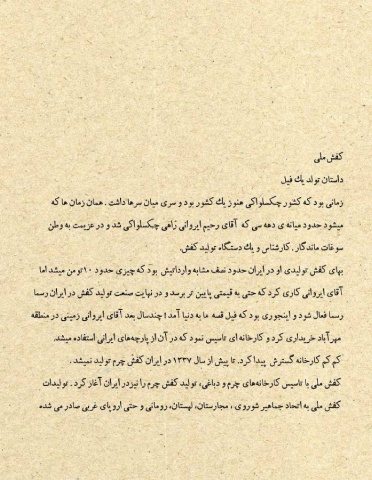 کفش ملی
داستان تولد یك فیل
زمانی بود که کشور چکسلواکی هنوز یك کشور بود و سری میان سرها داشت . همان زمان ها که
میشود حدود میانه ی دهه سی که آقای رحیم ایروانی راهی چکسلواکی شد و در عزیمت به وطن
سوغات ماندگار . کارشناس و یك دستگاه تولید کفش.
بهای کفش تولیدی او در ایران حدود نصف مشابه وارداتیش بود که چیزی حدود ۱۰تومن میشد اما
آقای ایروانی کاری کرد که حتی به قیمتی پایین تر برسد و در نهایت صنعت تولید کفش در ایران رسما
رسما فعال شود و اینجوری بود که فیل قصه ما به دنیا آمد ! چندسال بعد آقای ایروانی زمینی در منطقه
مهرآباد خریداری کرد و کارخانه ای تاسیس نمود که در آن از پارچه‌های ایرانی استفاده میشد.
کم کم کارخانه گسترش پیدا کرد. تا پیش از سال ۱۳۳۷ در ایران کفش چرم تولید نمیشد .
کفش ملی با تاسیس کارخانه‌های چرم و دباغی، تولید کفش چرم را نیزدر ایران آغاز کرد . تولیدات
کفش ملی به اتحاد جماهیر شوروی ، مجارستان، لهستان، رومانی و حتی اروپای غربی صادر می شده